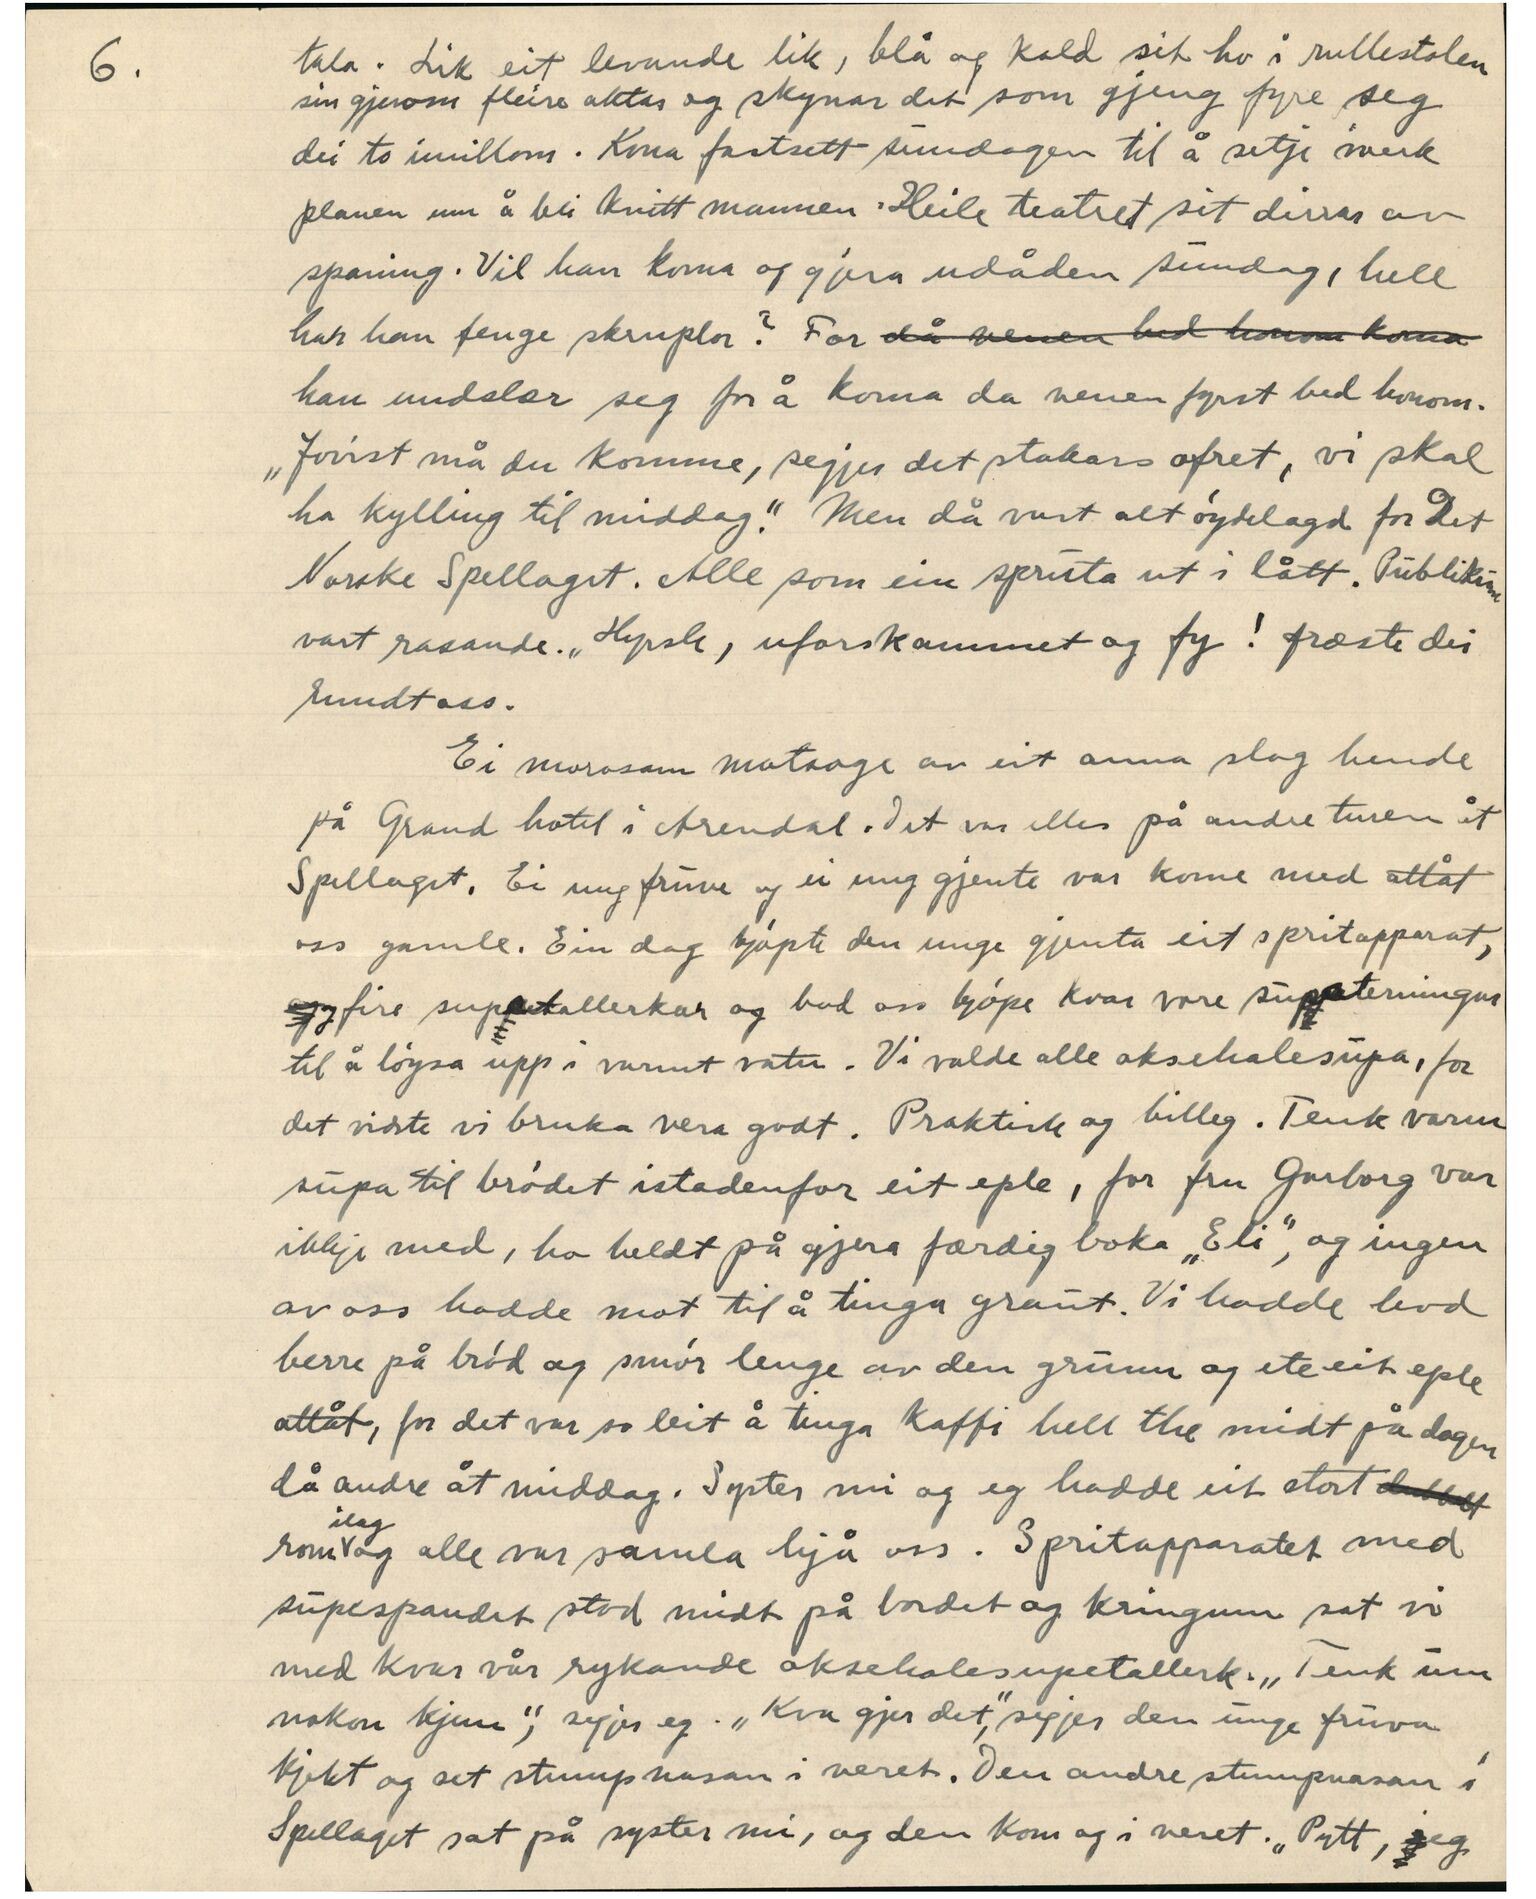 6.
tala. Lik eit levande lik, blå og kald sit ho i rullestolen
sin gjenom fleire aktar og skynar det som gjeng fyre seg
dei to imillom. Kona fastsett sundagen til å setje i verk
planen um å bli kvitt mannen. Heile teatret sit dirrar av
spaning. Vil han koma og gjera udåden sundag, hell
har han fenge skruplor? For då venen bad honom koma
han undslær seg for å koma da venen fyrst bad honom.
„Jovist må du komme, segjer det stakars ofret, vi skal
ha kylling til middag." Men då vart alt óydelagd for Det
Norske Spellaget. Alle som ein spruta ut i lått. Publikum
vart rasande. „Hysh, uforskammet og fy! fræste dei
rundt oss.
Ei morosam matsoge av eit anna slag hende
på Grand hotel i Arendal. Det var elles på andre turen åt
Spellaget. Ei ung fruve og ei ung gjente var kome med attåt
oss gamle. Ein dag kjópte den unge gjenta eit spritapparat,
og fire suppetallerkar og bad oss kjópe kvar vare suppeterningar
til å lóysa upp i varmt vatn. Vi valde alle oksehalesupa, for
det visste vi bruka vera godt. Praktisk og billeg. Tenk varm
supa til bródet istadenfor eit eple, for fru Garborg var
ikkje med, ho heldt på gjera færdig boka „Eli", og ingen
av oss hadde mot til å tinga graut. Vi hadde levd
berre på bród og smór lenge av den grunn og ete eit eple
attåt, for det var so leit å tinga kaffi hell the midt på dagen
då andre åt middag. Syster mi og eg hadde eit stort dubbelt
rom ilag og alle var samla hjå oss. Spritapparatet med
supespandet stod midt på bordet og kringum sat vi
med kvar vår rykande oksehalesupetallerk. „Tenk um
nokon kjem", segjer eg. „Kva gjer det," segjer den unge fruva
kjekt og set stumpnasan i veret. Den andre stumpnasan i
Spellaget sat på syster mi, og den kom og i veret. „Pytt, jeg